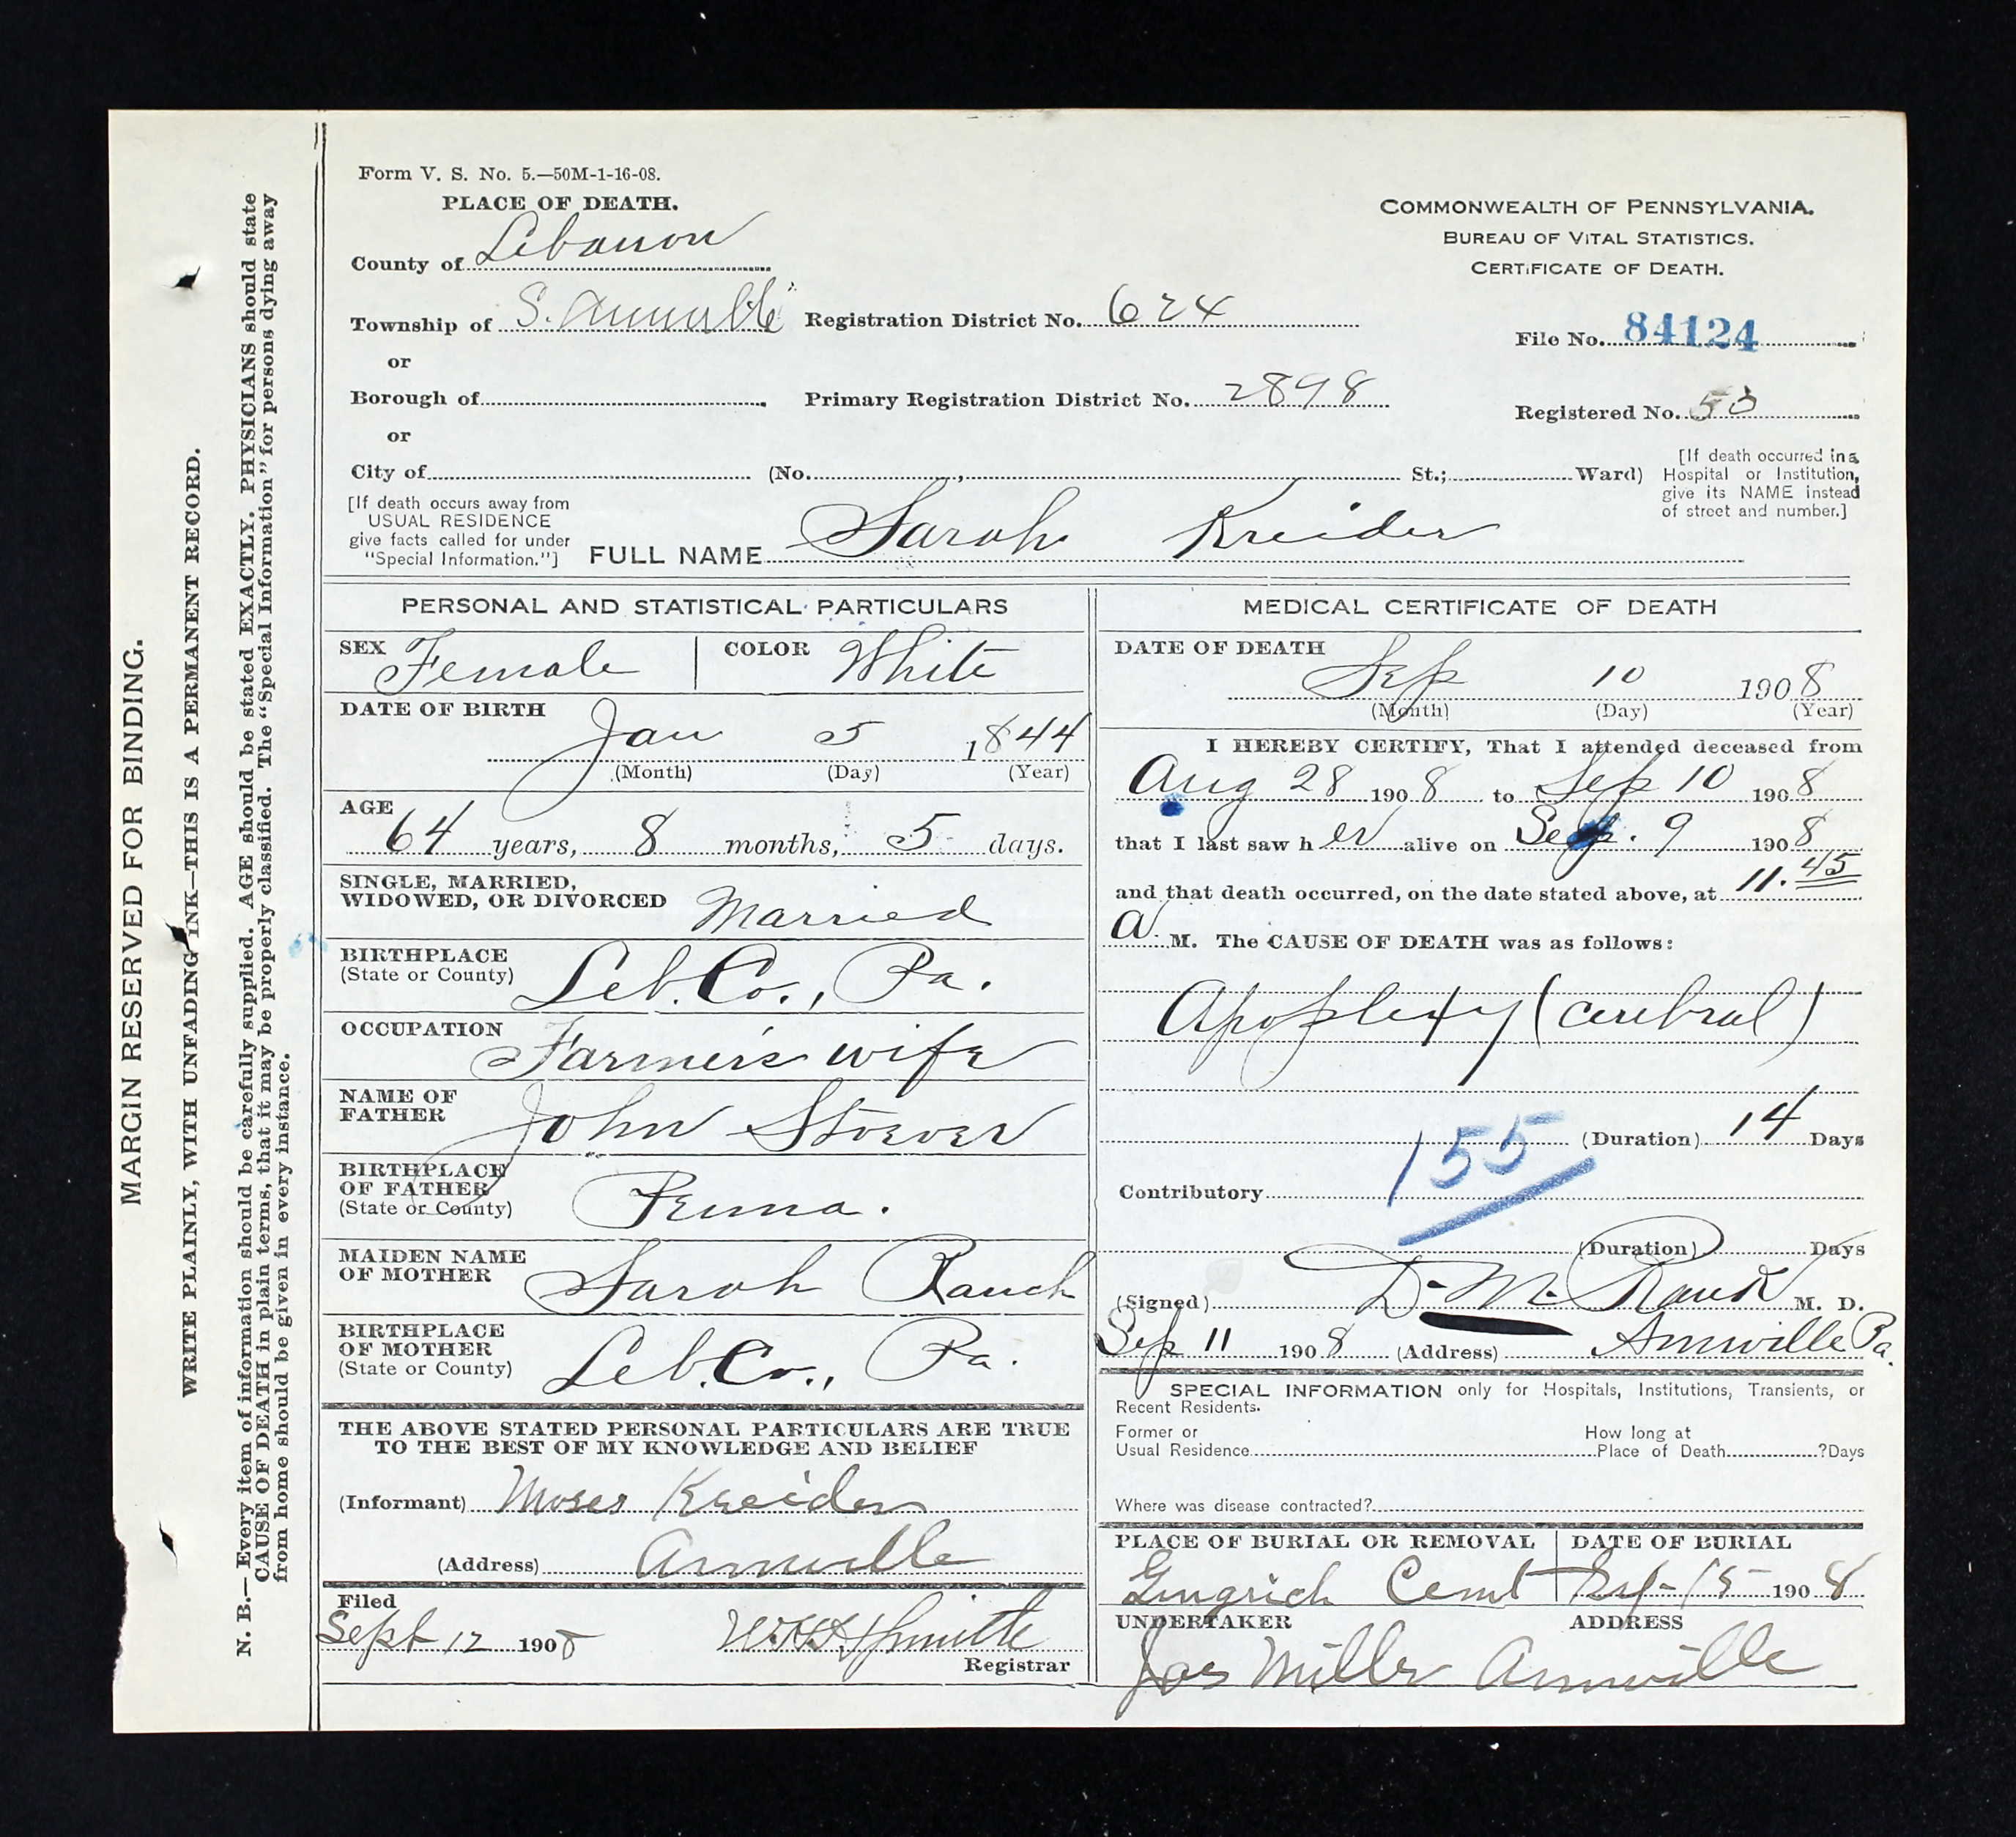 MARGIN RESERVED FOR BINDING.
WRITE PLAINLY, WITH UNFADING INK—THIS IS A PERMANENT RECORD.
N. B.—Every item of information should be carefully supplied. AGE should be stated EXACTLY. PHYSICIANS should state
CAUSE OF DEATH in plain terms, that it may be properly classified. The "Special Information" for persons dying away
from home should be given in every instance.
Form V. S. No. 5.—50M-1-16-08.
PLACE OF DEATH.
COMMONWEALTH OF PENNSYLVANIA.
BUREAU OF VITAL STATISTICS.
CERTIFICATE OF DEATH.
County of Lebanon
Township of S. Annville Registration District No. 624
File No. 84124
or
Borough of Primary Registration District No. 2898
Registered No. 50
or
City of (No. , St.; Ward)
[If death occurred in a
Hospital or Institution,
give its NAME instead
of street and number.]
[If death occurs away from
USUAL RESIDENCE
give facts called for under
"Special Information."]
FULL NAME Sarah Kreider
PERSONAL AND STATISTICAL PARTICULARS
SEX Female COLOR White
DATE OF BIRTH
Jan 5 1844
(Month) (Day) (Year)
AGE
64 years, 8 months, 5 days.
SINGLE, MARRIED,
WIDOWED, OR DIVORCED Married
BIRTHPLACE
(State or County) Leb. Co., Pa.
OCCUPATION
Farmer's wife
NAME OF
FATHER John Stoever
BIRTHPLACE
OF FATHER
(State or County) Penna.
MAIDEN NAME
OF MOTHER Sarah Rauch
BIRTHPLACE
OF MOTHER
(State or County) Leb. Co., Pa.
THE ABOVE STATED PERSONAL PARTICULARS ARE TRUE
TO THE BEST OF MY KNOWLEDGE AND BELIEF
(Informant) Moses Kreider
(Address) Annville
Filed
Sept 12 1908
Smith
Registrar
MEDICAL CERTIFICATE OF DEATH
DATE OF DEATH
Sep 10 1908
(Month) (Day) (Year)
I HEREBY CERTIFY, That I attended deceased from
Aug 28 1908 to Sep 10 1908
that I last saw her alive on Sep. 9 1908
and that death occurred, on the date stated above, at 11.45
a M. The CAUSE OF DEATH was as follows:
Apoplexy (cerebral)
155
(Duration) 14 Days
Contributory
(Duration) Days
(Signed) D. M. Rank M. D.
Sep 11 1908 (Address) Annville Pa.
SPECIAL INFORMATION only for Hospitals, Institutions, Transients, or
Recent Residents.
Former or
Usual Residence
How long at
Place of Death ?Days
Where was disease contracted?
PLACE OF BURIAL OR REMOVAL
Gingrich Cemt
DATE OF BURIAL
Sep- 15 1908
UNDERTAKER
Jos Miller
ADDRESS
Annville